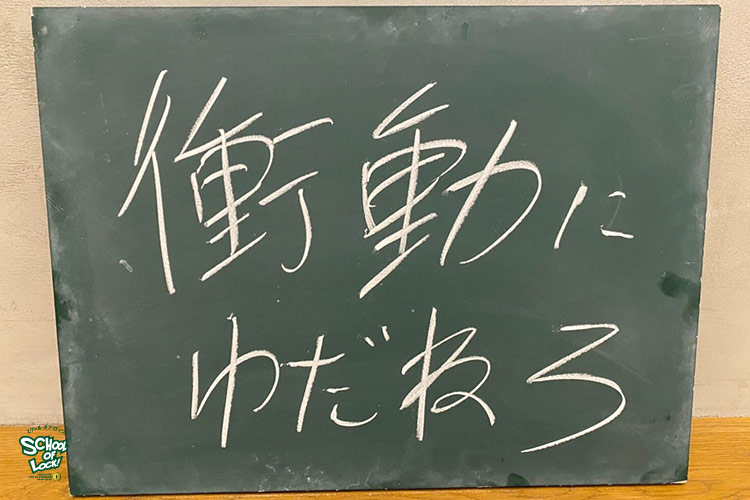 衝動に
ゆだねろ
SCHOOL
OF
LOCK!